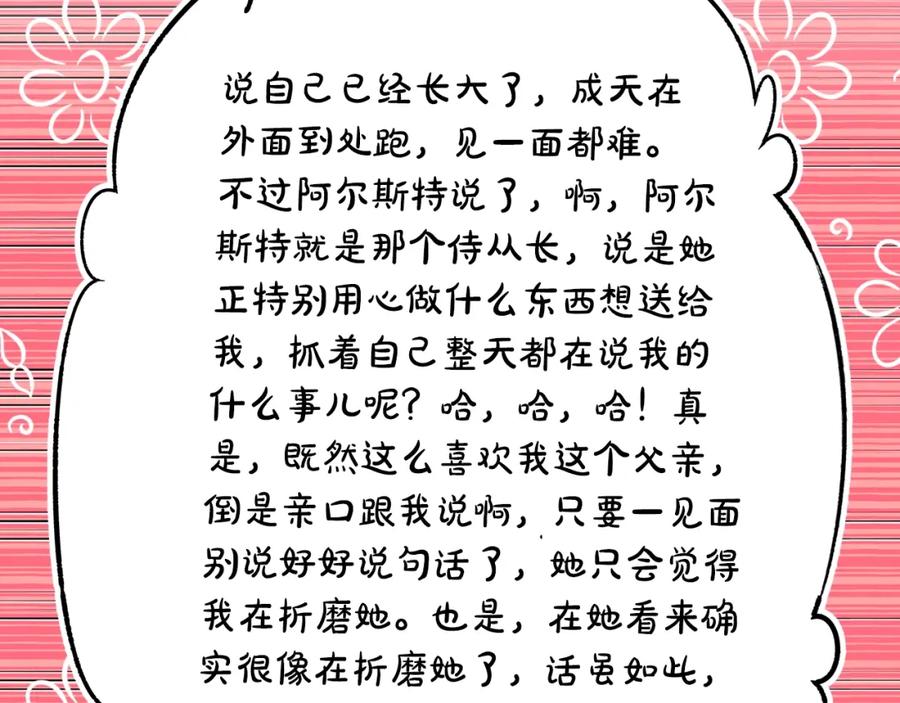 说自己已经长大了，成天在
外面到处跑，见一面都难。
不过阿尔斯特说了，啊，阿尔
斯特就是那个侍从长，说是她
正特别用心做什么东西想送给
我，抓着自己整天都在说我的
什么事儿呢？哈，哈，哈！真
是，既然这么喜欢我这个父亲，
倒是亲口跟我说啊，只要一见面
别说好好说句话了，她只会觉得
我在折磨她。也是，在她看来确
实很像在折磨她了，话虽如此，